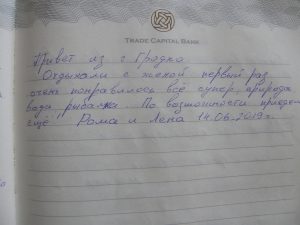 TRADE CAPITAL BANK
Привет из г Гродна
Отдыхали с женой первый раз
очень понравилось всё супер природа
вода рыбалка. По возможности приедем
ещё Рома и Лена 14.06.2019г.